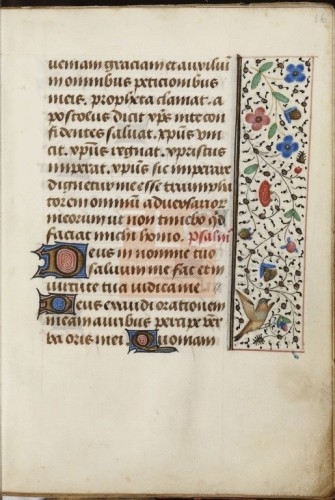 ueniam graciam et auxiliū
in omnibus peticionibus
meis. propheta clamat. a
postolus dicit xp̄s in te con
fidentes saluat. xp̄us vin
cit. xp̄us regnat. xpristus
imperat. xp̄us sic imperare
dignetur me esse triumpha
torem omniū aduersarior
meorum ut non timebo qd
faciat michi homo. Psalm
Deus in nomine tuo
saluum me fac et in
uirtute tua iudica me
Deus exaudi orationem
meam auribus percipe ver
ba oris mei. Quoniam